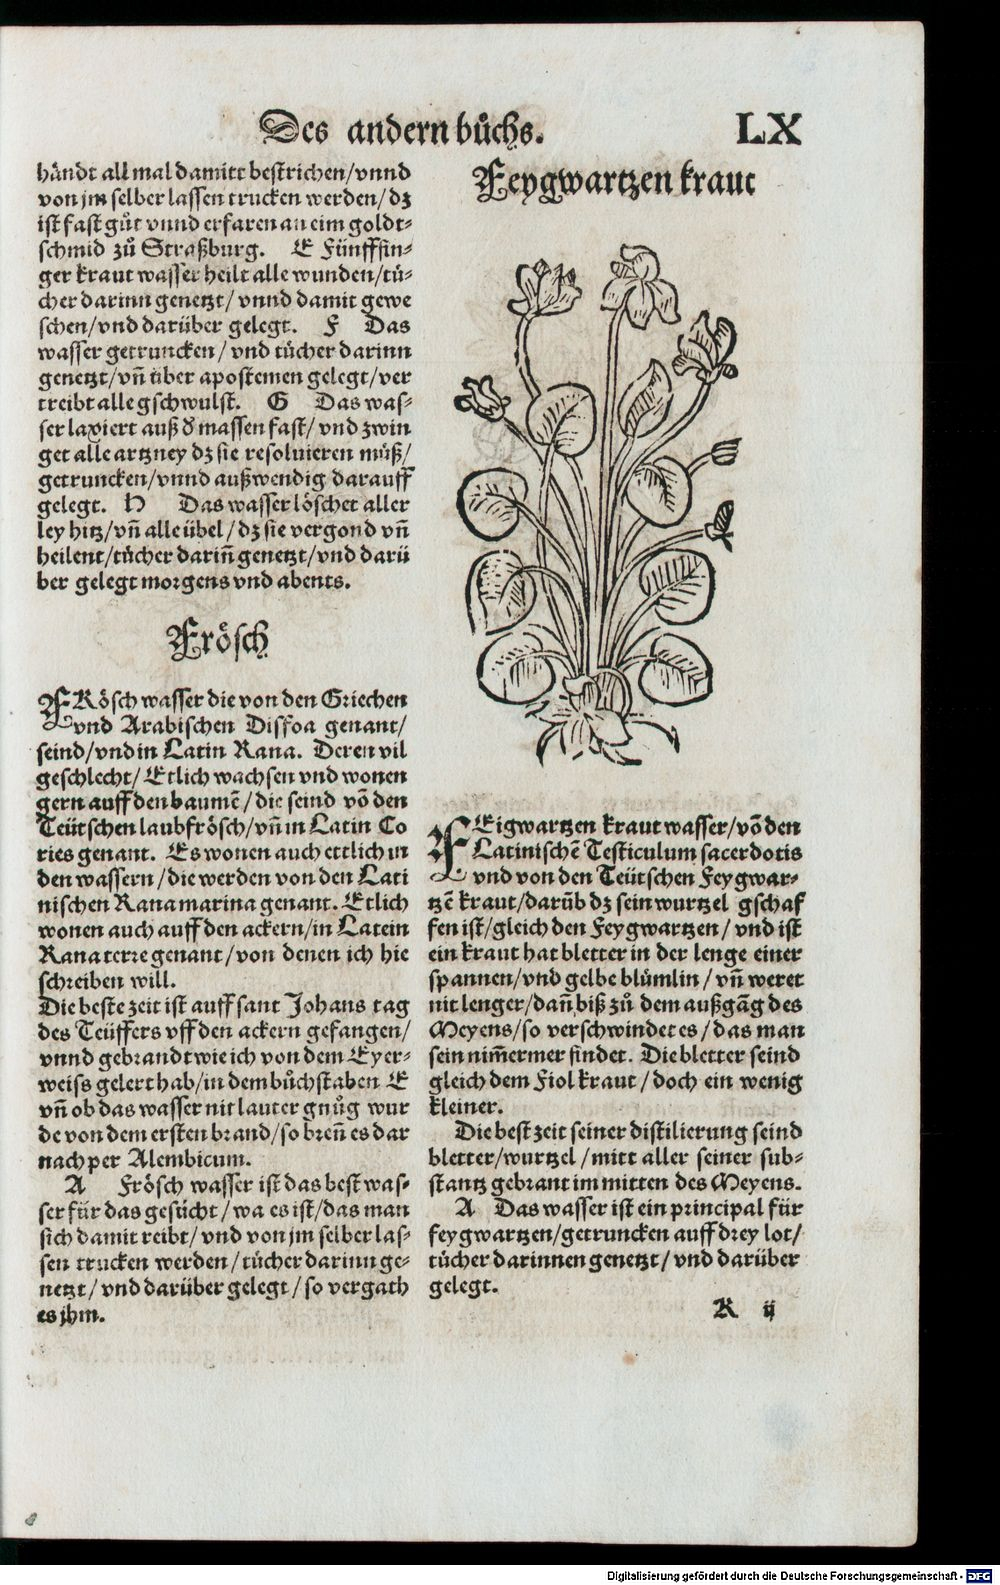 Des andern bůchs.
LX
händt all mal damitt bestrichen/vnnd
von jm selber lassen trucken werden/dz
ist fast gůt vnnd erfaren an eim goldt⸗
schmid zů Straßburg. E Fünfffin⸗
ger kraut wasser heilt alle wunden/tů⸗
cher darinn genetzt/vnnd damit gewe
schen/vnd darüber gelegt. F Das
wasser getruncken/vnd tůcher darinn
genetzt/vñ über apostemen gelegt/ver
treibt alle gschwulst. G Das was⸗
ser laxiert auß d massen fast/vnd zwin
get alle artzney dz sie resoluieren můß/
getruncken/vnnd außwendig darauff
gelegt. H Das wasser löschet aller
ley hitz/vñ alle übel/dz sie vergond vñ
heilent/tůcher dariñ genetzt/vnd darü
ber gelegt morgens vnd abents.
Frösch
FRösch wasser die von den Griechen
vnd Arabischen Disfoa genant/
seind/vnd in Latin Rana. Deren vil
geschlecht/Etlich wachsen vnd wonen
gern auff den baumẽ/die seind võ den
Teütschen laubfrösch/vñ in Latin Co
ries genant. Es wonen auch ettlich in
den wassern/die werden von den Lati
nischen Rana marina genant. Etlich
wonen auch auff den ackern/in Latein
Rana terre genant/von denen ich hie
schreiben will.
Die beste zeit ist auff sant Johans tag
des Teüffers vff den ackern gefangen/
vnnd gebrandt wie ich von dem Eyer⸗
weiss gelert hab/in dem bůchstaben E
vñ ob das wasser nit lauter gnůg wur
de von dem ersten brand/so breñ es dar
nach per Alembicum.
A Frösch wasser ist das best was⸗
ser für das gesücht/wa es ist/das man
sich damit reibt/vnd von jm selber las⸗
sen trucken werden/tůcher darinn ge⸗
netzt/vnd darüber gelegt/so vergath
es jhm.
Feygwartzen kraut
FEigwartzen kraut wasser/võ den
Latinischẽ Testiculum sacerdotis
vnd von den Teütschen Feygwar⸗
tzẽ kraut/darüb dz sein wurtzel gschaf
fen ist/gleich den Feygwartzen/vnd ist
ein kraut hat bletter in der lenge einer
spannen/vnd gelbe blůmlin/vñ weret
nit lenger/dañ biß zů dem außgãg des
Meyens/so verschwindet es/das man
sein nim̃ermer findet. Die bletter seind
gleich dem Fiol kraut/doch ein wenig
kleiner.
Die best zeit seiner distilierung seind
bletter/wurtzel/mitt aller seiner sub⸗
stantz gebrant im mitten des Meyens.
A Das wasser ist ein principal für
feygwartzen/getruncken auff drey lot/
tůcher darinnen genetzt/vnd darüber
gelegt.
K ij
Digitalisierung gefördert durch die Deutsche Forschungsgemeinschaft - DFG